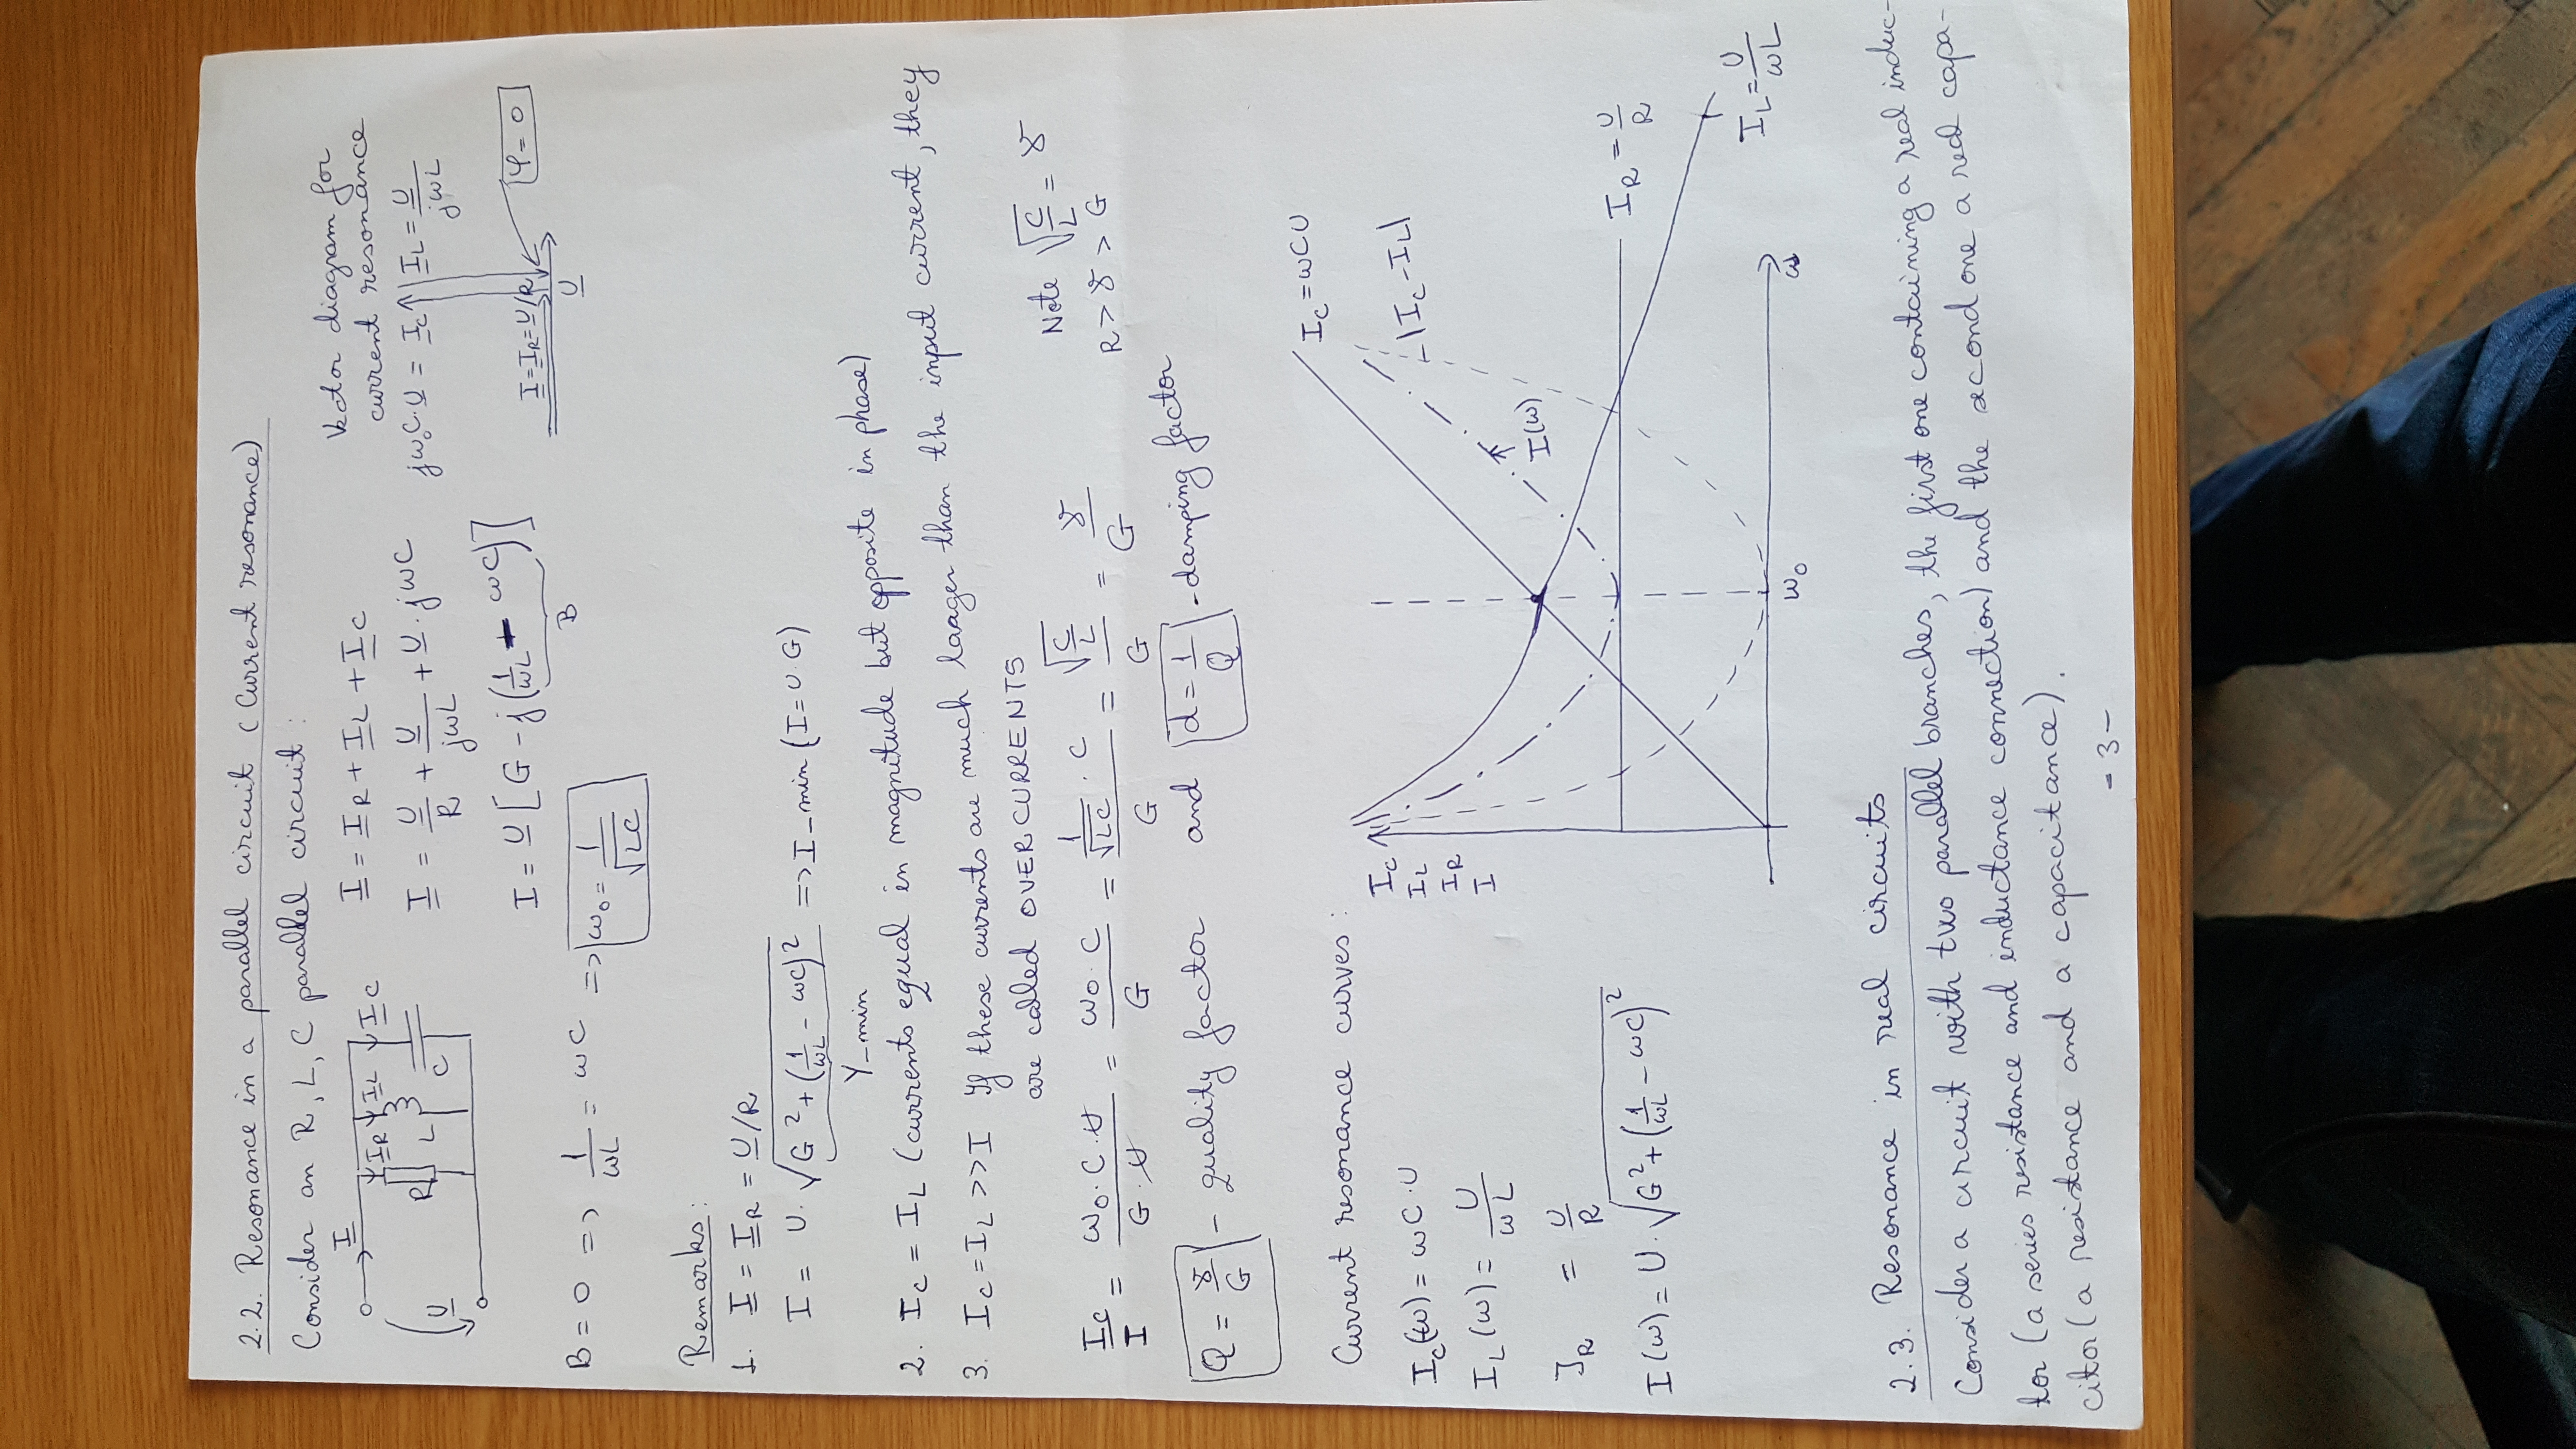 2.2. Resonance in a parallel circuit (Current resonance)
Consider an R, L, C parallel circuit:
I
U
R IR L IL C IC
I = IR + IL + IC
I = U/R + U/jωL + U·jωC
I = U[G - j(1/ωL - ωC)]
B
Vector diagram for
current resonance
jω₀C·U = IC IL = U/jωL
I = IR = U/R
U
φ = 0
B = 0 => 1/ωL = ωC => ω₀ = 1/√LC
Remarks:
1. I = IR = U/R
I = U·√G² + (1/ωL - ωC)² => I_min (I = U·G)
Y_min
2. IC = IL (currents equal in magnitude but opposite in phase)
3. IC = IL >> I If these currents are much laager than the input current, they
are called OVERCURRENTS
IC/I = ω₀·C·U/G·U = ω₀·C/G = 1/√LC·C/G = √C/L/G = γ/G
Note √C/L = γ
R > γ > G
Q = γ/G - quality factor and d = 1/Q - damping factor
Current resonance curves:
IC(ω) = ωC·U
IL(ω) = U/ωL
IR = U/R
I(ω) = U·√G² + (1/ωL - ωC)²
IC
IL
IR
I
IC = ωCU
|IC - IL|
I(ω)
IR = U/R
IL = U/ωL
ω₀
ω
2.3. Resonance in real circuits
Consider a circuit with two parallel branches, the first one containing a real induc-
tor (a series resistance and inductance connection) and the second one a red capa-
citor (a resistance and a capacitance).
- 3 -